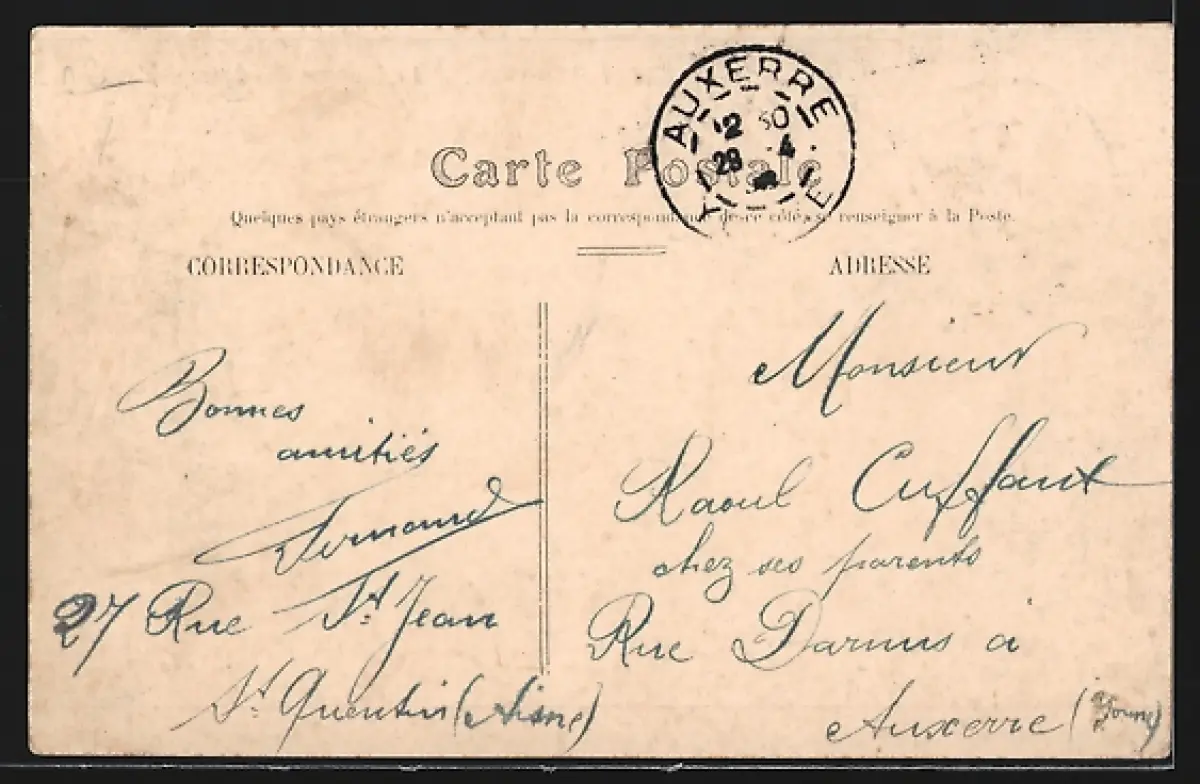 AUXERRE
12 30
29 4
Y E
Carte Postale
Quelques pays étrangers n'acceptant pas la correspondance de ce côté, se renseigner à la Poste.
CORRESPONDANCE
ADRESSE
Bonnes
amitiés
Fernand
27 Rue St Jean
St Quentin (Aisne)
Monsieur
Raoul
chez ses parents
Rue à
Auxerre (Yonne)